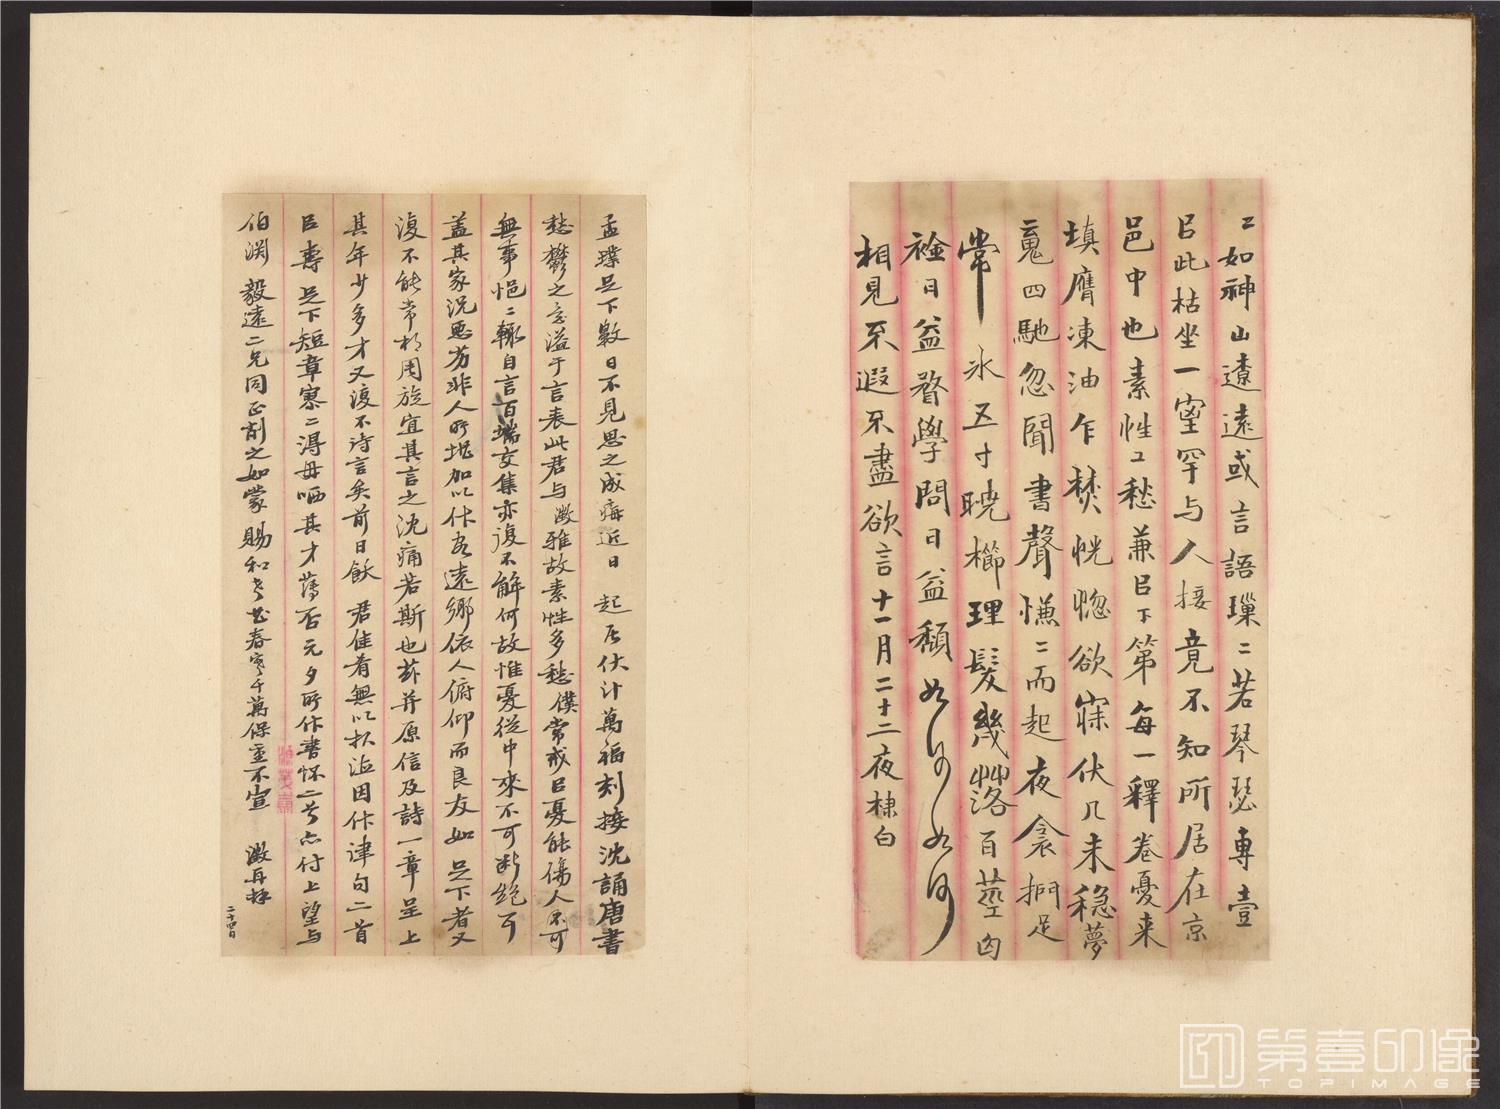 二如神山遼遠或言語璅二若琴瑟專壹
㠯此枯坐一室罕与人接竟不知所居在京
邑中也素性工愁兼㠯下第每一釋卷憂来
填膺凍油乍焚恍惚欲寐伏几未穏夢
二䰟四馳忽聞書聲慊二而起夜衾捫足
常氷五寸暁櫛理髮幾艸落百莖囪
禭日益瞀學問日益頹如何如何
相見不遐不盡欲言十一月二十二夜棣白
孟璞足下數日不見思之成痗近日起居伏汁萬福刻接沈誦唐書
愁鬱之意溢于言表此君与澂雅故素性多愁僕常戒㠯憂能傷人不可
無事悒二輒自言百端交集亦復不解何故惟憂從中來不可斷絶耳
盖其家況惡劣非人所堪加以作客遠鄉依人俯仰而良友如足下者又
復不能常相周旋宜其言之沈痛若斯也茲并原信及詩一章呈上
其年少多才又復不待言矣前日飲君佳肴無以報因作律句二首
㠯壽足下短章寥二得毋哂其才薄否元夕所作書怀二首亦付上望与
伯淵毅遠二兄同正削之如蒙賜和幸甚春寒千萬保重不宣澂再拜
二十四日
第壹印像
TOPIMAGE